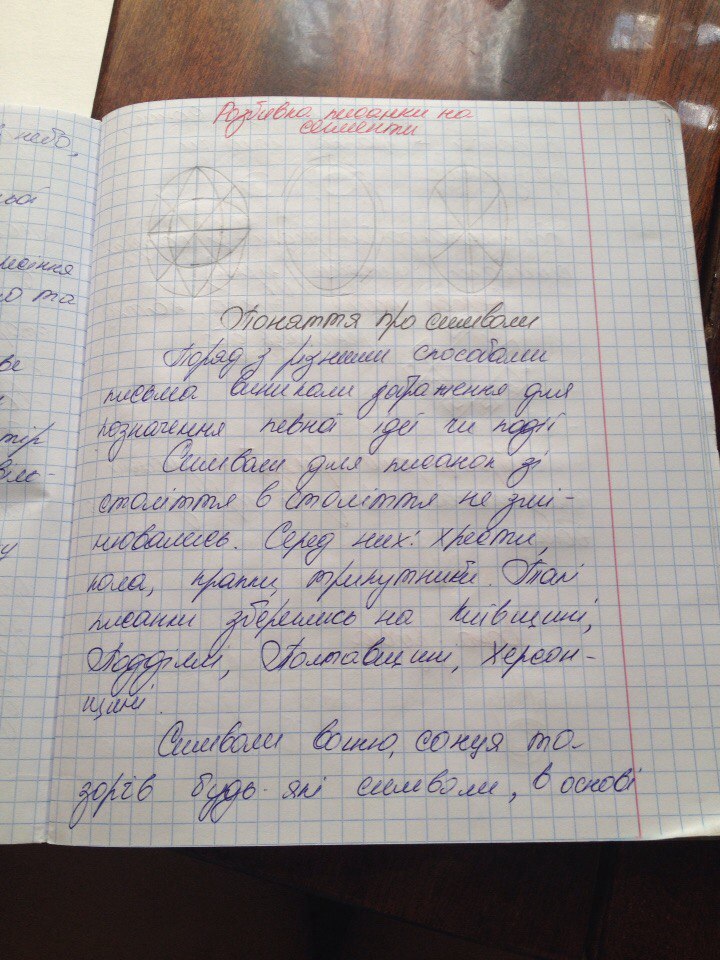 Розбивка писанки на
сегменти
Поняття про символи
Поряд з різними способами
письма виникали зображення для
позначення певної ідеї чи події
Символи для писанок зі
століття в століття не змі-
нювались. Серед них: хрести,
кола, краплі, трикутники. Такі
писанки збереглись на Київщині,
Поділлі, Полтавщині, Херсон-
щині.
Символи вогню, сонця та
зорів будь-які символи, в основі
небо,
ої
та
ве
тір
у